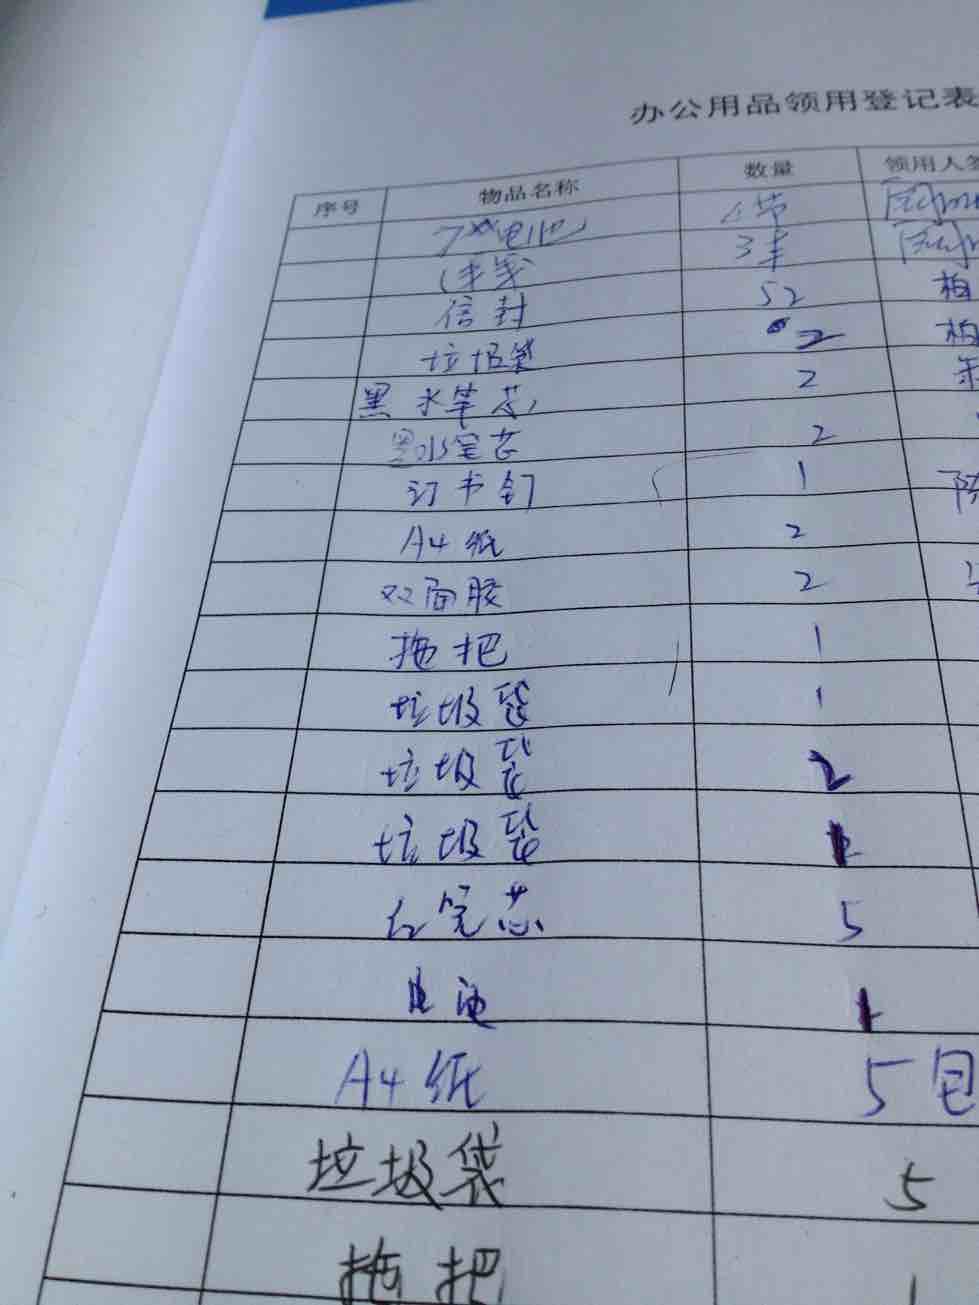 办公用品领用登记表
序号 物品名称 数量 领用人签
7#电池 4节
手套 3丰
信封 52 柏
垃圾袋 2 柏
黑水笔芯 2
黑水笔芯 2
订书钉 1 陈
A4纸 2
双面胶 2
拖把 1
垃圾袋 1
垃圾袋 2
垃圾袋 1
红笔芯 5
电池 1
A4纸 5包
垃圾袋 5
拖把 1